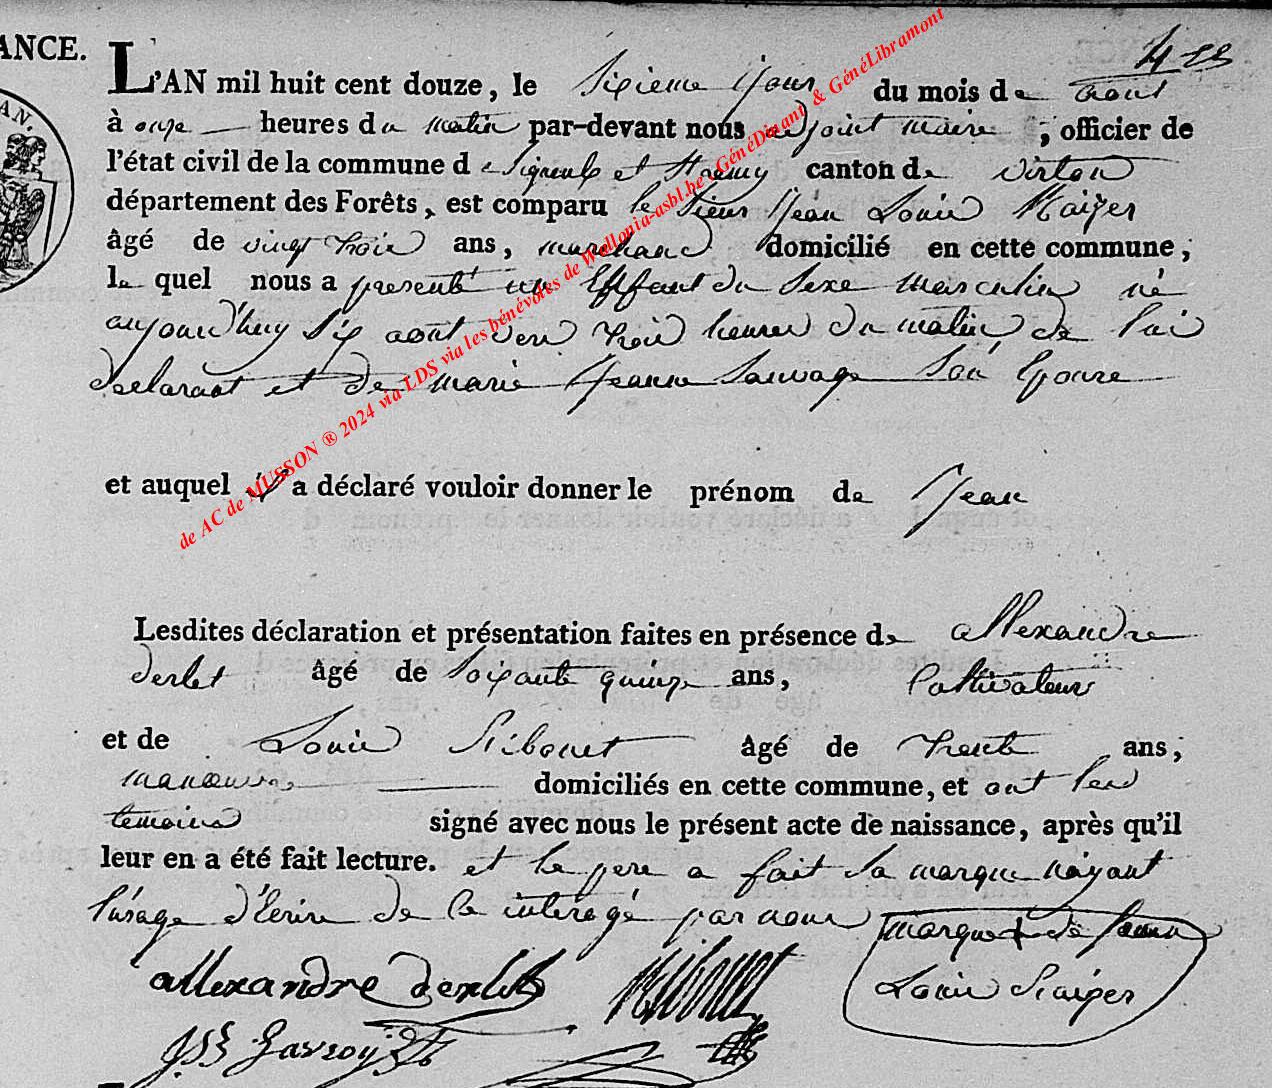 ANCE.
L'AN mil huit cent douze, le Sixieme Jour du mois de aout
à onze heures du matin par-devant nous adjoint maire, officier de
l'état civil de la commune de Signeulx et canton de virton
département des Forêts, est comparu le Sieur Jean Louis
âgé de vingt trois ans, marchand domicilié en cette commune,
le quel nous a presenté un Enfant du Sexe masculin né
aujourd'huy Six aout vers trois heures du matin de lui
declarant et de marie Jeanne Sauvage Son Epouse
et auquel il a déclaré vouloir donner le prénom de Jean
Lesdites déclaration et présentation faites en présence de allexandre
derlet âgé de Soixante quinze ans, Cultivateur
et de Louis Ribonet âgé de trente ans,
manoeuvre domiciliés en cette commune, et ont les
temoins signé avec nous le présent acte de naissance, après qu'il
leur en a été fait lecture. et le pere a fait sa marque n'ayant
l'usage d'Ecrire de ce interogé par nous
marque de Jean
Louis
allexandre derlet Ribonet
de AC de MUSSON ® 2024 via LDS via les bénévoles de Wallonia-asbl.be - GénéDinant & GénéLibramont